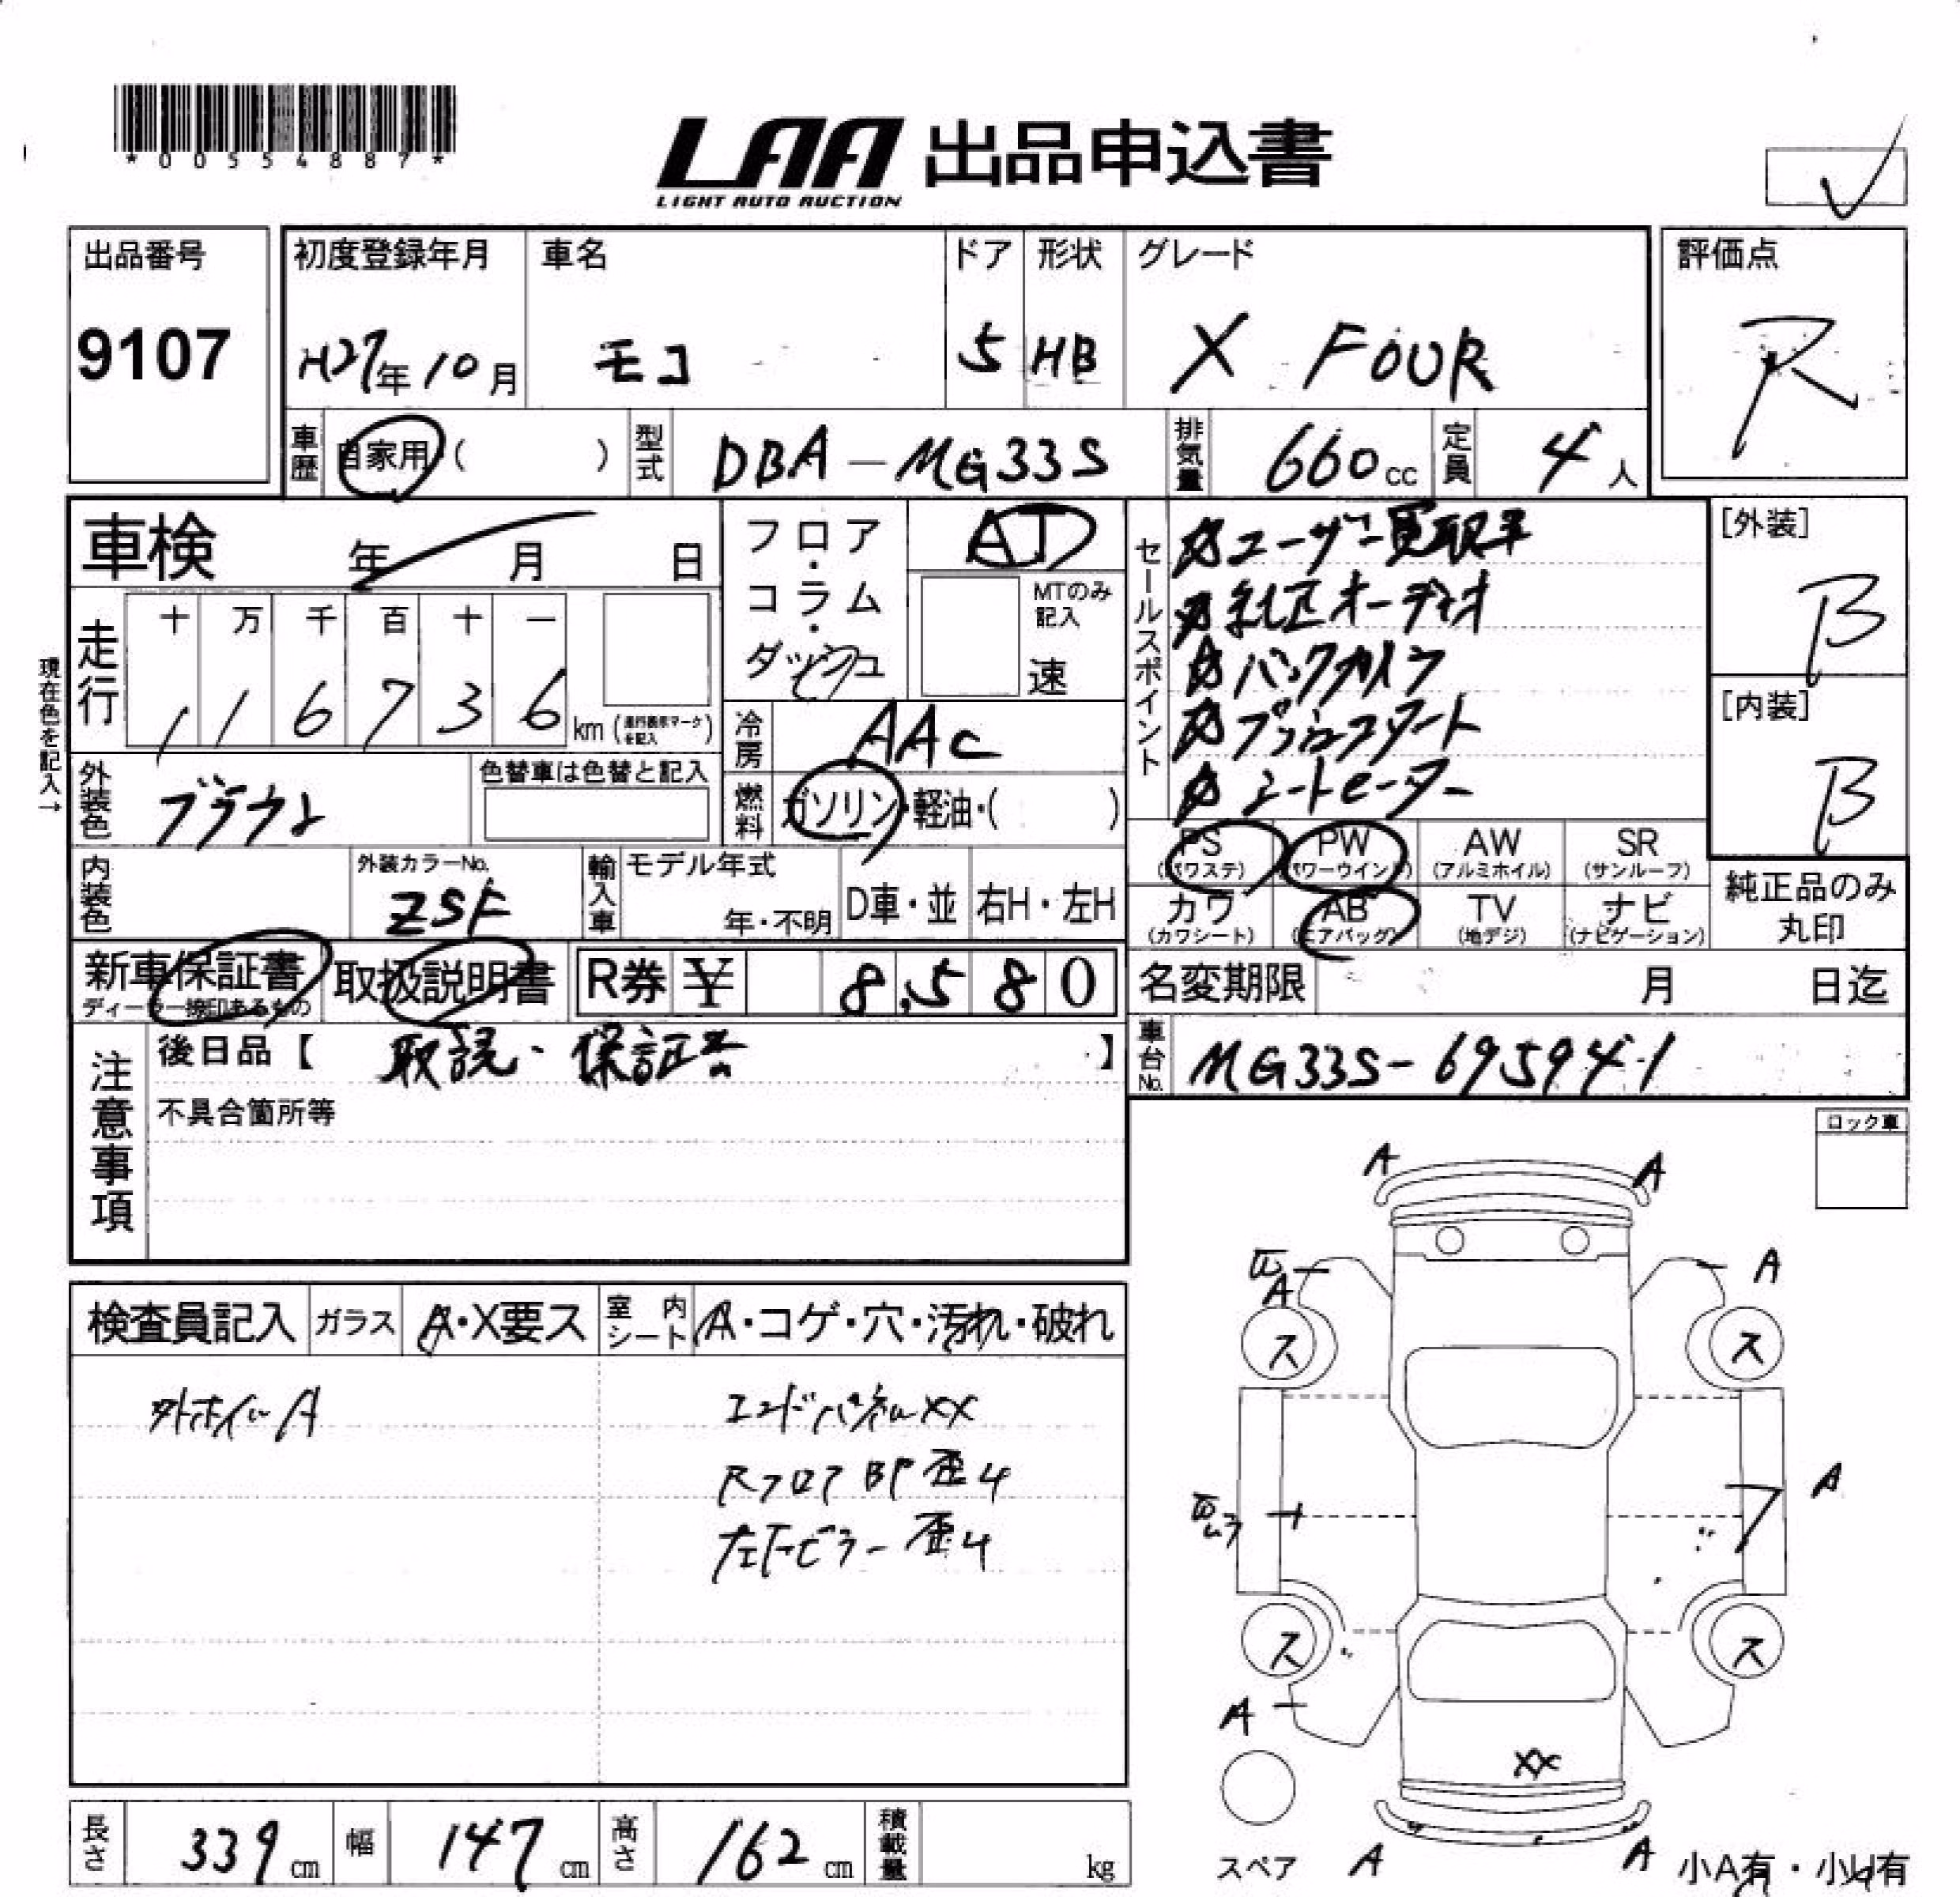 *00554887*
LAA 出品申込書
LIGHT AUTO AUCTION
出品番号 初度登録年月 車名 ドア 形状 グレード 評価点
9107 H27年10月 モコ 5 HB X FOUR R
車歴 自家用 ( ) 型式 DBA-MG33S 排気量 660cc 定員 4人
車検 年 月 日
フロア・コラム・ダッシュ
AT
MTのみ記入
速
セールスポイント
ユーザー買取車
純正オーディオ
バックカメラ
プッシュスタート
シートヒーター
[外装]
B
[内装]
B
現在色を記入→
走行 十 万 千 百 十 一
1 1 6 7 3 6 km (走行表示マークを記入)
冷房 AAC
外装色 ブラウン 色替車は色替と記入
燃料 ガソリン・軽油・( )
PS PW AW SR
(パワステ) (パワーウインド) (アルミホイル) (サンルーフ)
カワ AB TV ナビ
(カワシート) (エアバッグ) (地デジ) (ナビゲーション)
純正品のみ
丸印
内装色 外装カラーNo. ZSF 輸入車 モデル年式 年・不明 D車・並 右H・左H
新車保証書 取扱説明書 R券 ¥ 8,580
ディーラー捺印あるもの
名変期限 月 日迄
車台No. MG33S-695941
注意事項
後日品【 取説・保証書 】
不具合箇所等
ロック車
検査員記入 ガラス A・X要ス 室内シート A・コゲ・穴・汚れ・破れ
外ホイールA
エンドパネルXX
Rフロア BP 歪4
左Fピラー 歪4
A A
A A
ス ス
A
ス ス
A
XX
スペア A A 小A有・小U有
長さ 339cm 幅 147cm 高さ 162cm 積載量 kg